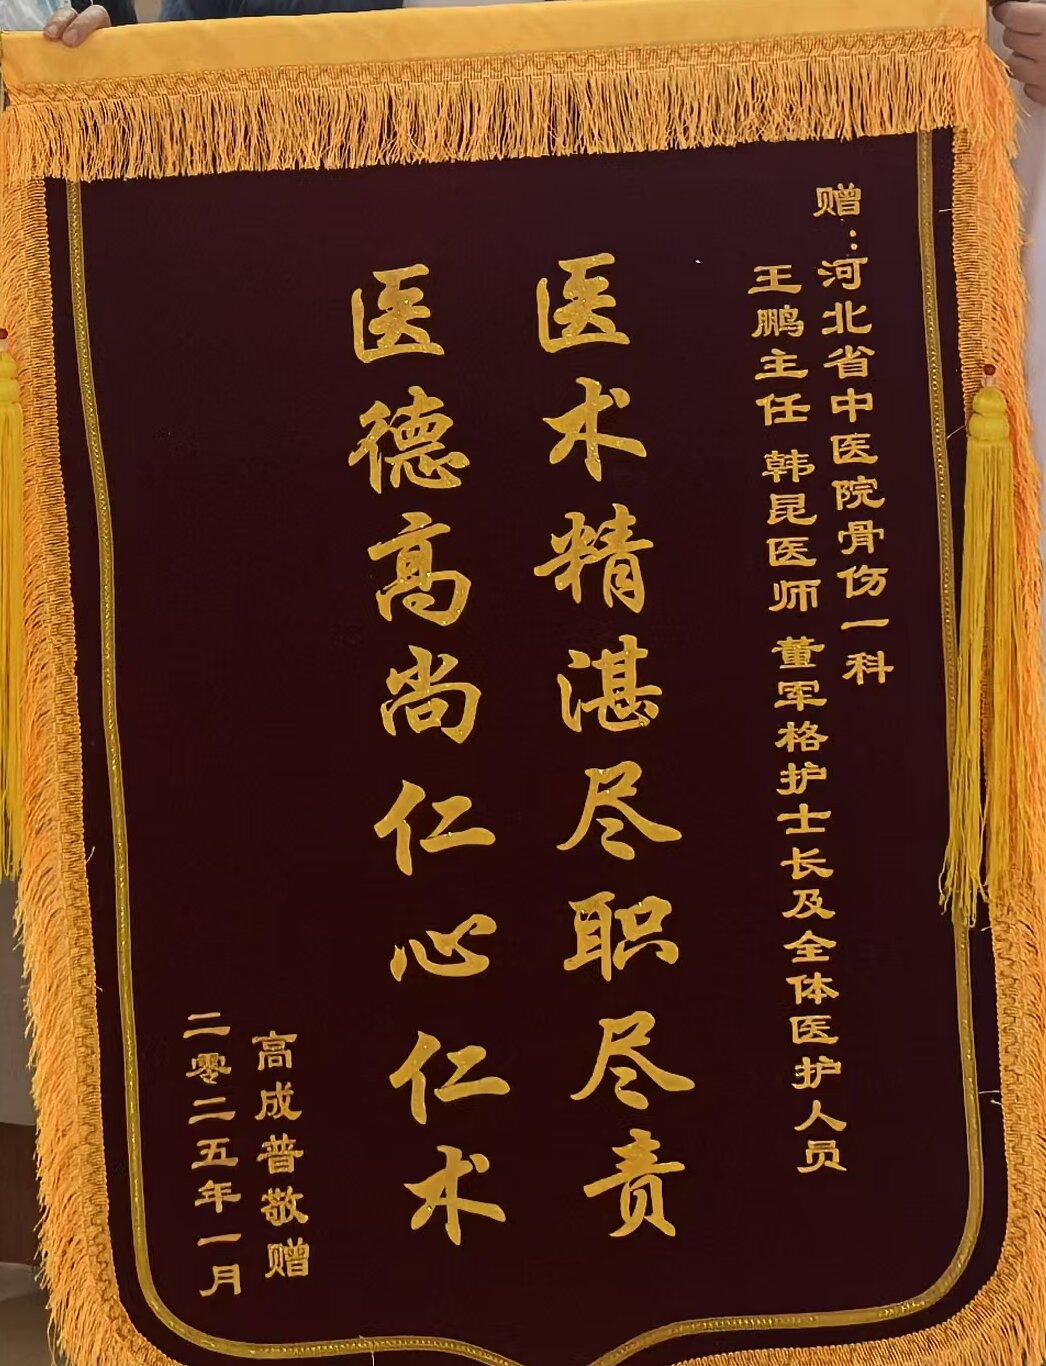 赠：河北省中医院骨伤一科
王鹏主任 韩昆医师 董军格护士长及全体医护人员
医术精湛尽职尽责
医德高尚仁心仁术
高成普敬赠
二零二五年一月